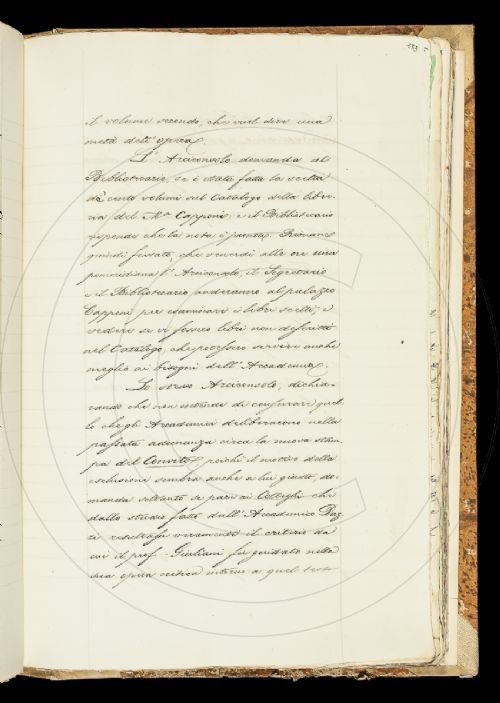 il volume secondo, che vuol dire una
metà dell'opera.
L'Arciconsolo domanda al
Bibliotecario, se è stata fatta la scelta
de' cento volumi sul Catalogo della libre-
ria del M.se Capponi; e il Bibliotecario
risponde che la nota è pronta. Rimane
quindi fissato, che venerdì alle ore una
pomeridiana l'Arciconsolo, il Segretario
e il Bibliotecario anderanno al palazzo
Capponi per esaminare i libri scelti, e
vedere se vi fossero libri non descritti
nel Catalogo, che potessero servire anche
meglio ai bisogni dell'Accademia.
Lo stesso Arciconsolo, dichia-
rando che non intende di censurare quel-
lo che gli Accademici deliberarono nella
passata adunanza circa la nuova stam-
pa del Convito, poiché il motivo della
esclusione sembra anche a lui giusto, do-
manda soltanto se pare ai Colleghi che
dallo studio fatto dall'Accademico Daz-
zi risultasse veramente il criterio da
cui il prof. Giuliani fu guidato nella
sua opera critica intorno a quel trat-